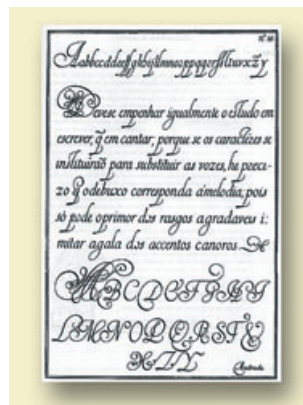 Aabbccddeeffgghhijllmneoppqqrrsſstuvxzy
Devese empenhar igualmente o eſtudo em
escrever, q̃ em cantar, porque se os caractẽres se
instituiraõ para substituir as vozes, he preci-
zo q̃ odebuxo corresponda ámelodia, pois
só póde oprimor dos rasgos agradaveis i:
mitar agala dos accentos canoros.
ABCDEFGHI
LMNOPQRST
Andrade